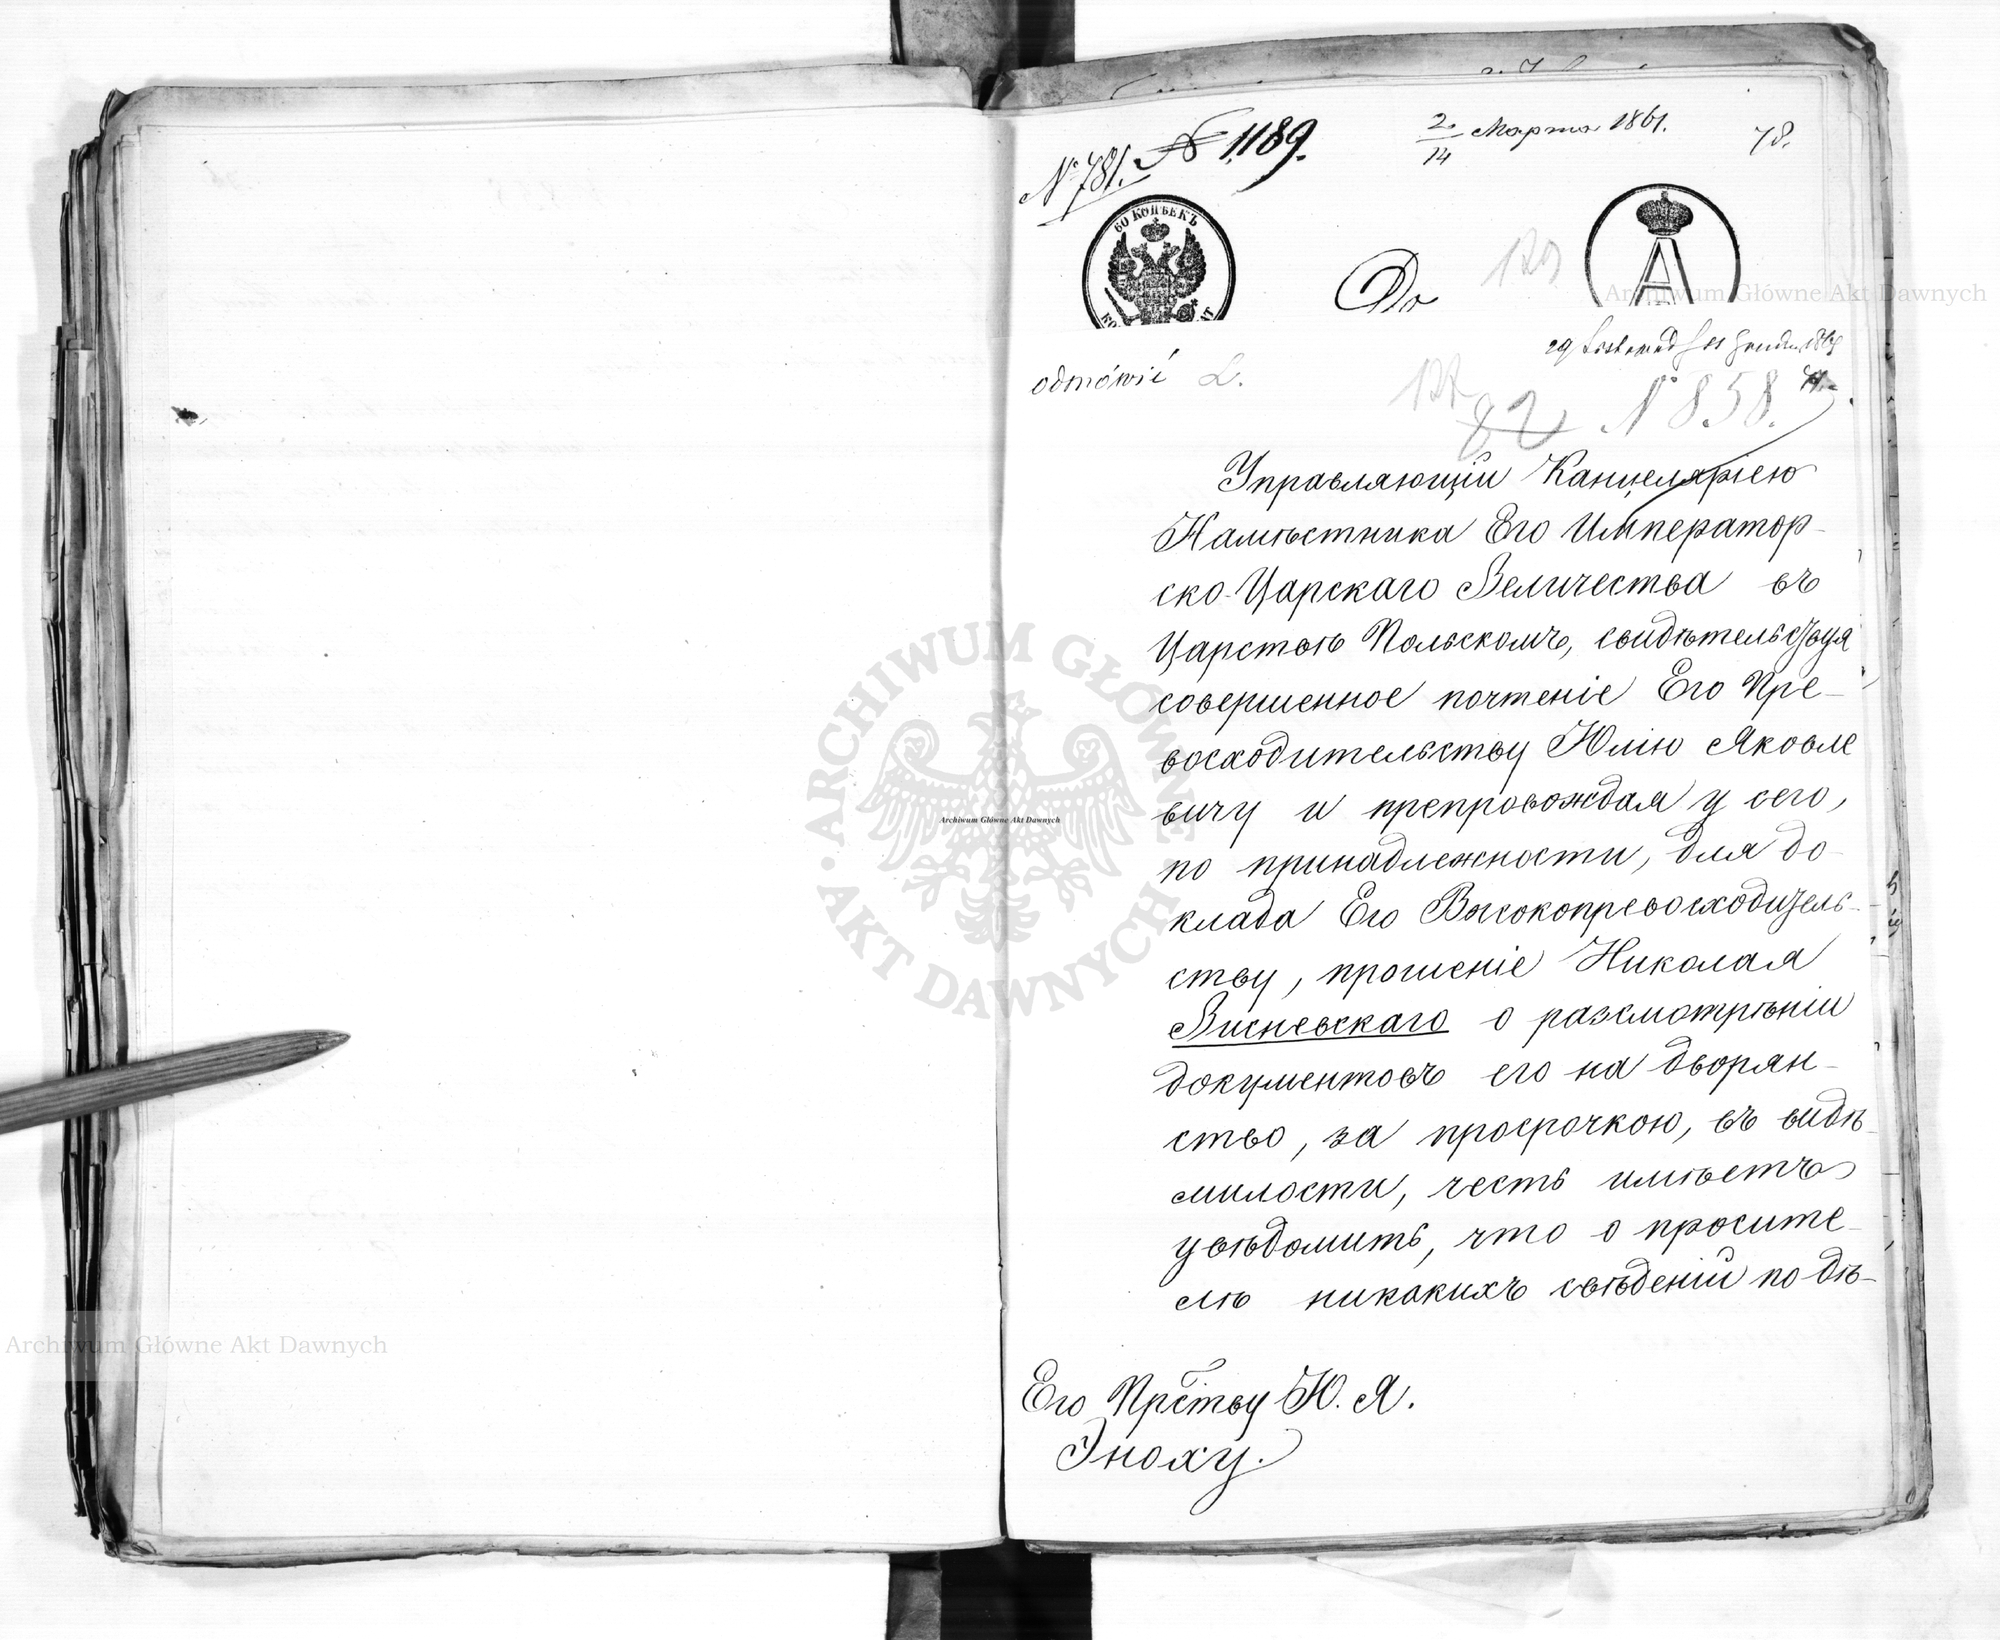 № 781.
№ 1189.
2/14 Марта 1861.
78.
60 КОПѢЕКЪ
До
129
А
odmówić L.
29 Listopad
82
№ 858.
Управляющій Канцеляріею
Намѣстника Его Император-
ско-Царскаго Величества въ
Царствѣ Польскомъ, свидѣтельствуя
совершенное почтеніе Его Пре-
восходительству Юлію Яковле
вичу и препровождая у сего,
по принадлежности, для до-
клада Его Высокопревосходитель-
ству, прошеніе Николая
Висневскаго о разсмотрѣніи
документовъ его на дворян-
ство, за просрочкою, въ видѣ
милости, честь имѣетъ
увѣдомить, что о просите-
лѣ никакихъ свѣдѣній по дѣ-
Его Прству Ю. Я.
Эноху.
ARCHIWUM GŁÓWNE AKT DAWNYCH
Archiwum Główne Akt Dawnych
Archiwum Główne Akt Dawnych
Archiwum Główne Akt Dawnych